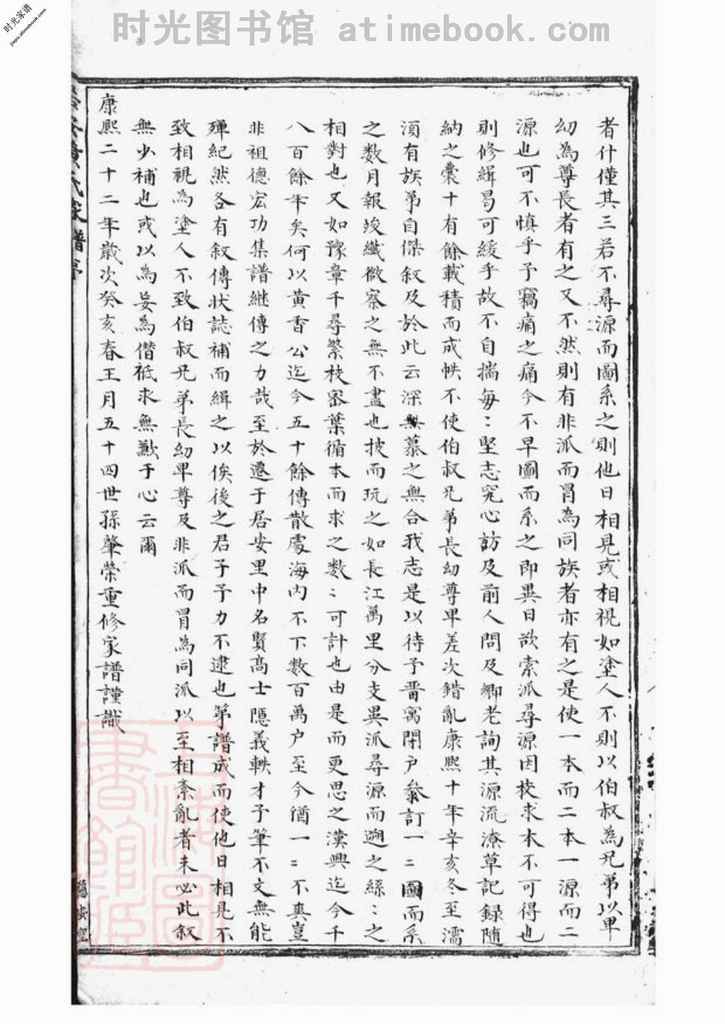 时光图书馆 atimebook.com
时光家谱
jiapu.atimebook.com
者什僅其三若不尋源而圖系之則他日相見或相視如塗人不則以伯叔為兄弟以卑
幼為尊長者有之又不然則有非派而冒為同族者亦有之是使一本而二本一源而二
源也可不慎乎予竊痛之痛今不早圖而系之即異日欲索派尋源因枝求本不可得也
則修緝曷可緩乎故不自揣每〻堅志究心訪及前人問及鄉老詢其源流潦草記録随
納之囊十有餘載積而成帙不使伯叔兄弟長幼尊卑差次錯亂康熙十年辛亥冬至濡
湏有族弟自傑叙及於此云深無慕之無合我志是以待予晋寓閉户叅訂一〻圖而系
之数月報竣纖微察之無不盡也披而玩之如長江萬里分支異派尋源而遡之絲〻之
相對也又如豫章千尋繁枝宻葉循本而求之数〻可計也由是而更思之漢興迄今千
八百餘年矣何以黄香公迄今五十餘傳散處海内不下数百萬户至今猶一〻不真豈
非祖德宏功集譜継傳之力哉至於遷于居安里中名賢髙士隠義軼才予筆不文無能
殫紀然各有叙傳狀誌補而緝之以俟後之君子予力不逮也第譜成而使他日相見不
致相視為塗人不致伯叔兄弟長幼卑尊及非派而冒為同派以至相紊亂者未必此叙
無少補也或以為妄為僭祗求無歉于心云爾
康熙二十二年歳次癸亥春王月五十四世孫肇榮重修家譜謹識
黄氏家譜序